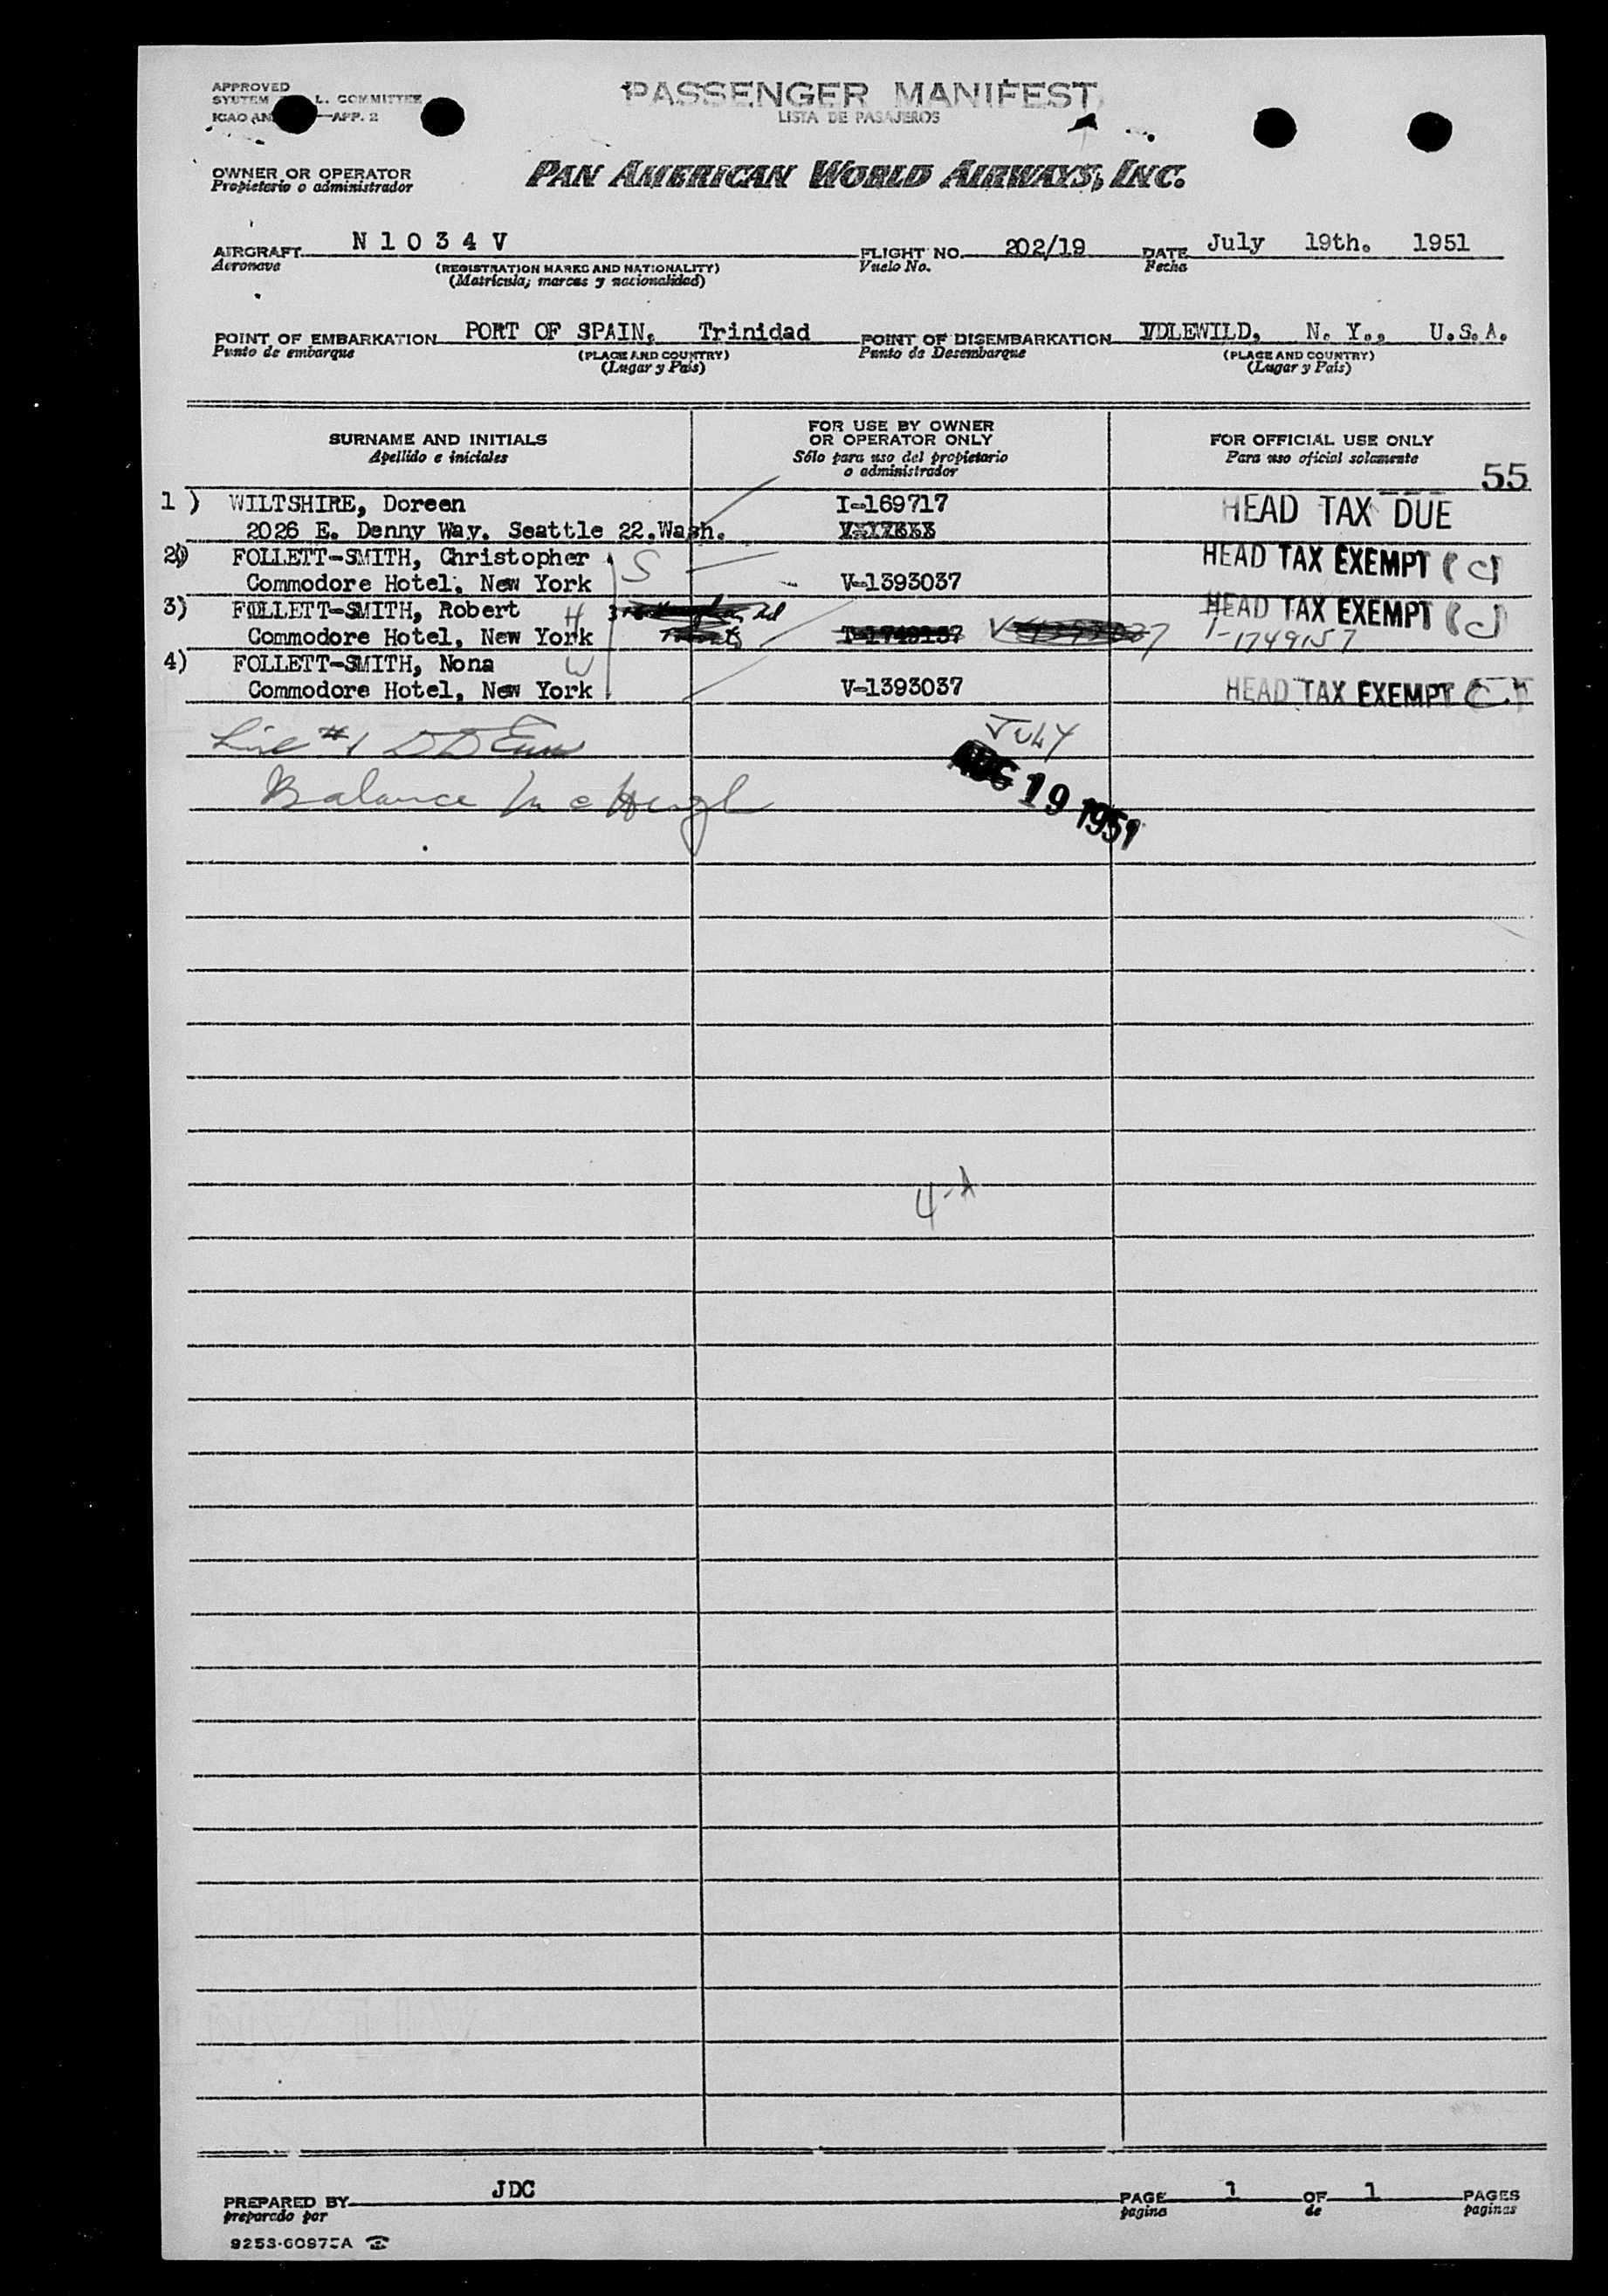 APPROVED
PASSENGER MANIFEST
SYSTEM L. COMMITTEE
LISTA DE PASAJEROS
ICAO AN —APP. 2
OWNER OR OPERATOR
Propietario o administrador
PAN AMERICAN WORLD AIRWAYS, INC.
AIRCRAFT N 1 0 3 4 V FLIGHT NO. 202/19 DATE July 19th. 1951
Aeronave (REGISTRATION MARKS AND NATIONALITY) Vuelo No. Fecha
(Matrícula; marcas y nacionalidad)
POINT OF EMBARKATION PORT OF SPAIN, Trinidad POINT OF DISEMBARKATION YDLEWILD, N. Y., U.S.A.
Punto de embarque (PLACE AND COUNTRY) Punto de Desembarque (PLACE AND COUNTRY)
(Lugar y País) (Lugar y País)
SURNAME AND INITIALS
Apellido e iniciales
FOR USE BY OWNER
OR OPERATOR ONLY
Sólo para uso del propietario
o administrador
FOR OFFICIAL USE ONLY
Para uso oficial solamente
55
1 ) WILTSHIRE, Doreen I-169717 HEAD TAX DUE
2026 E. Denny Way. Seattle 22.Wash.
2) FOLLETT-SMITH, Christopher S HEAD TAX EXEMPT (C)
Commodore Hotel, New York V-1393037
3) FOLLETT-SMITH, Robert H HEAD TAX EXEMPT (C)
Commodore Hotel, New York T-1749157 I-1749157
4) FOLLETT-SMITH, Nona W
Commodore Hotel, New York V-1393037 HEAD TAX EXEMPT
Line #1
JULY
Balance
AUG 19 1951
4-A
PREPARED BY JDC PAGE 1 OF 1 PAGES
preparado por pagina de paginas
9253-60975A